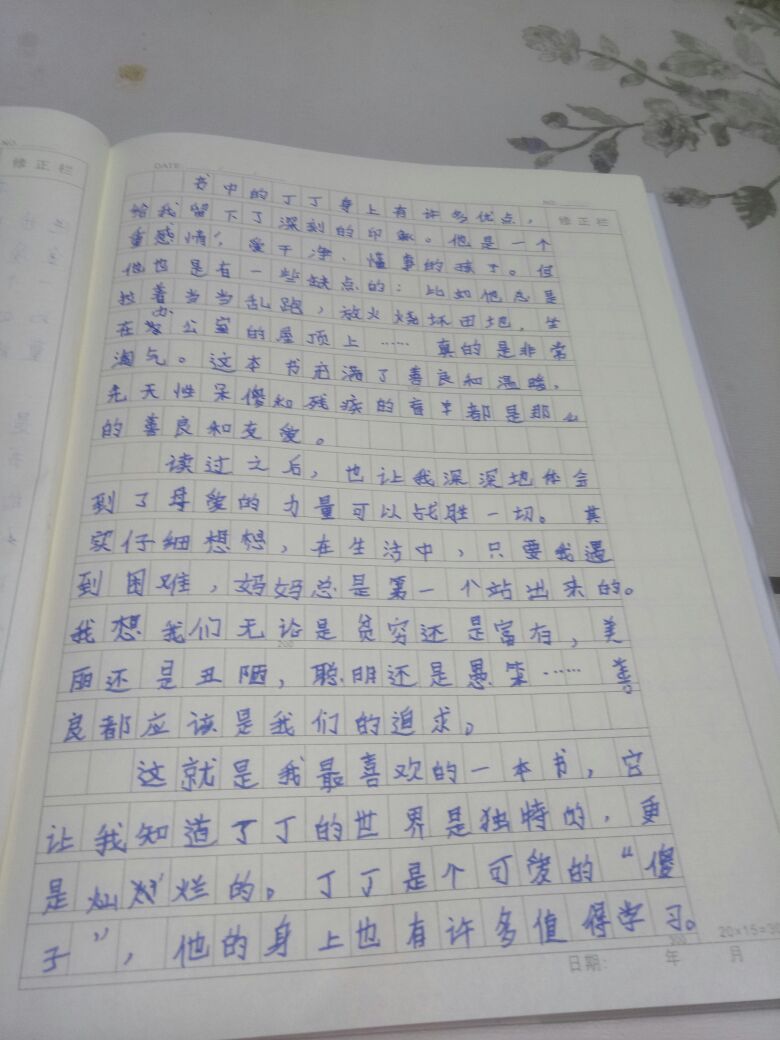 修正栏
DATE
NO.
修正栏
书中的丁丁身上有许多优点，
给我留下了深刻的印象。他是一个
重感情、爱干净、懂事的孩子。但
他也是有一些缺点的：比如他总是
拉着当当乱跑，放火烧坏田地，坐
在办公室的屋顶上……真的是非常
淘气。这本书充满了善良和温暖，
先天性呆傻和残疾的青羊都是那么
的善良和友爱。
读过之后，也让我深深地体会
到了母爱的力量可以战胜一切。其
实仔细想想，在生活中，只要我遇
到困难，妈妈总是第一个站出来的。
我想我们无论是贫穷还是富有，美
丽还是丑陋，聪明还是愚笨……善
良都应该是我们的追求。
这就是我最喜欢的一本书，它
让我知道了丁的世界是独特的，更
是灿烂的。丁丁是个可爱的“傻
子”，他的身上也有许多值得学习。
20×15=30
日期： 年 月